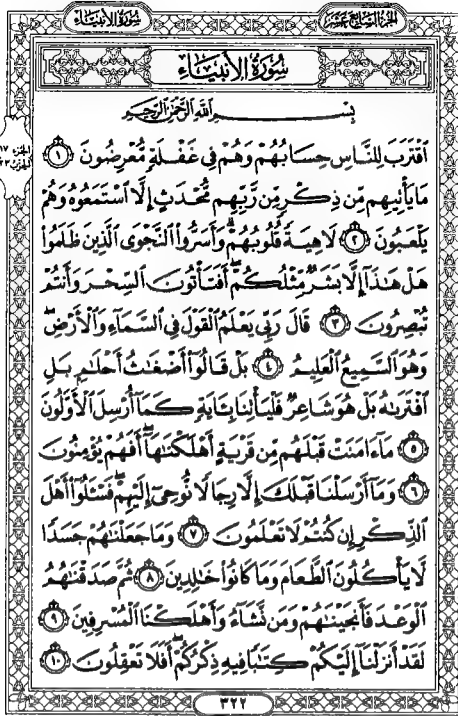 سُورَةُ الأَنبِيَاءِ
الجُزءُ السَّابِعَ عَشَرَ
سُورَةُ الأَنبِيَاءِ
بِسْمِ ٱللَّهِ ٱلرَّحْمَٰنِ ٱلرَّحِيمِ
ٱقْتَرَبَ لِلنَّاسِ حِسَابُهُمْ وَهُمْ فِى غَفْلَةٍ مُّعْرِضُونَ ١
مَا يَأْتِيهِم مِّن ذِكْرٍ مِّن رَّبِّهِم مُّحْدَثٍ إِلَّا ٱسْتَمَعُوهُ وَهُمْ
يَلْعَبُونَ ٢ لَاهِيَةً قُلُوبُهُمْ ۗ وَأَسَرُّوا۟ ٱلنَّجْوَى ٱلَّذِينَ ظَلَمُوا۟
هَلْ هَٰذَآ إِلَّا بَشَرٌ مِّثْلُكُمْ ۖ أَفَتَأْتُونَ ٱلسِّحْرَ وَأَنتُمْ
تُبْصِرُونَ ٣ قَالَ رَبِّى يَعْلَمُ ٱلْقَوْلَ فِى ٱلسَّمَآءِ وَٱلْأَرْضِ ۖ
وَهُوَ ٱلسَّمِيعُ ٱلْعَلِيمُ ٤ بَلْ قَالُوٓا۟ أَضْغَٰثُ أَحْلَٰمٍۭ بَلِ
ٱفْتَرَىٰهُ بَلْ هُوَ شَاعِرٌ فَلْيَأْتِنَا بِـَٔايَةٍ كَمَآ أُرْسِلَ ٱلْأَوَّلُونَ
٥ مَآ ءَامَنَتْ قَبْلَهُم مِّن قَرْيَةٍ أَهْلَكْنَٰهَآ ۖ أَفَهُمْ يُؤْمِنُونَ
٦ وَمَآ أَرْسَلْنَا قَبْلَكَ إِلَّا رِجَالًا نُّوحِىٓ إِلَيْهِمْ ۖ فَسْـَٔلُوٓا۟ أَهْلَ
ٱلذِّكْرِ إِن كُنتُمْ لَا تَعْلَمُونَ ٧ وَمَا جَعَلْنَٰهُمْ جَسَدًا
لَّا يَأْكُلُونَ ٱلطَّعَامَ وَمَا كَانُوا۟ خَٰلِدِينَ ٨ ثُمَّ صَدَقْنَٰهُمُ
ٱلْوَعْدَ فَأَنجَيْنَٰهُمْ وَمَن نَّشَآءُ وَأَهْلَكْنَا ٱلْمُسْرِفِينَ ٩
لَقَدْ أَنزَلْنَآ إِلَيْكُمْ كِتَٰبًا فِيهِ ذِكْرُكُمْ ۖ أَفَلَا تَعْقِلُونَ ١٠
٣٢٢